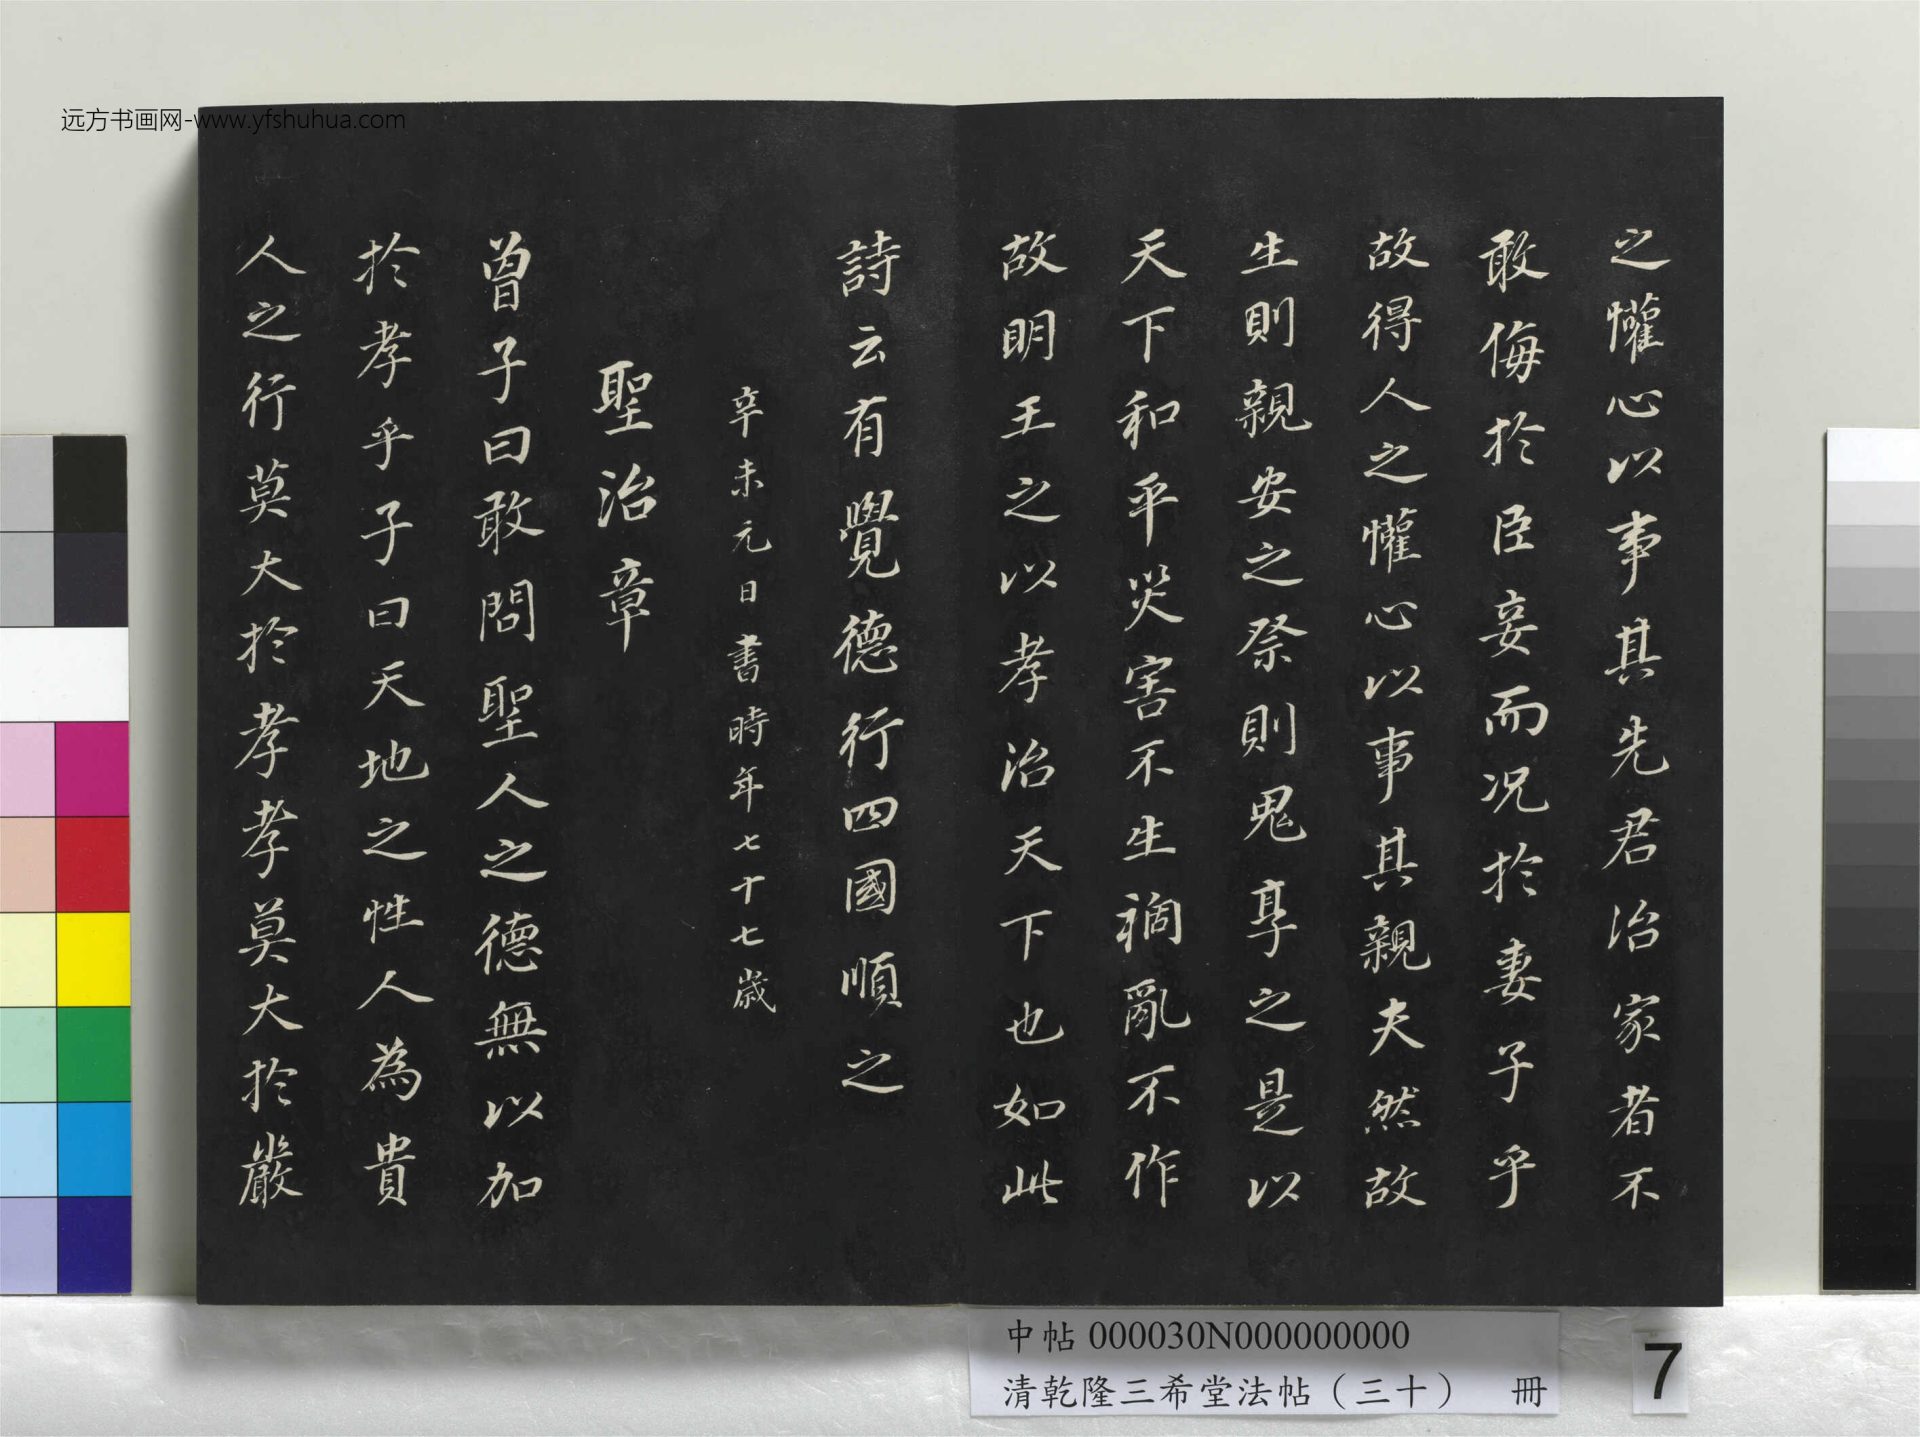 远方书画网-www.yfshuhua.com
之懽心以事其先君治家者不
敢侮於臣妾而况於妻子乎
故得人之懽心以事其親夫然故
生則親安之祭則鬼享之是以
天下和平災害不生禍亂不作
故明王之以孝治天下也如此
詩云有覺德行四國順之
辛未元日書時年七十七歲
聖治章
曾子曰敢問聖人之德無以加
於孝乎子曰天地之性人為貴
人之行莫大於孝孝莫大於嚴
中帖 000030N000000000
清乾隆三希堂法帖（三十） 冊
7